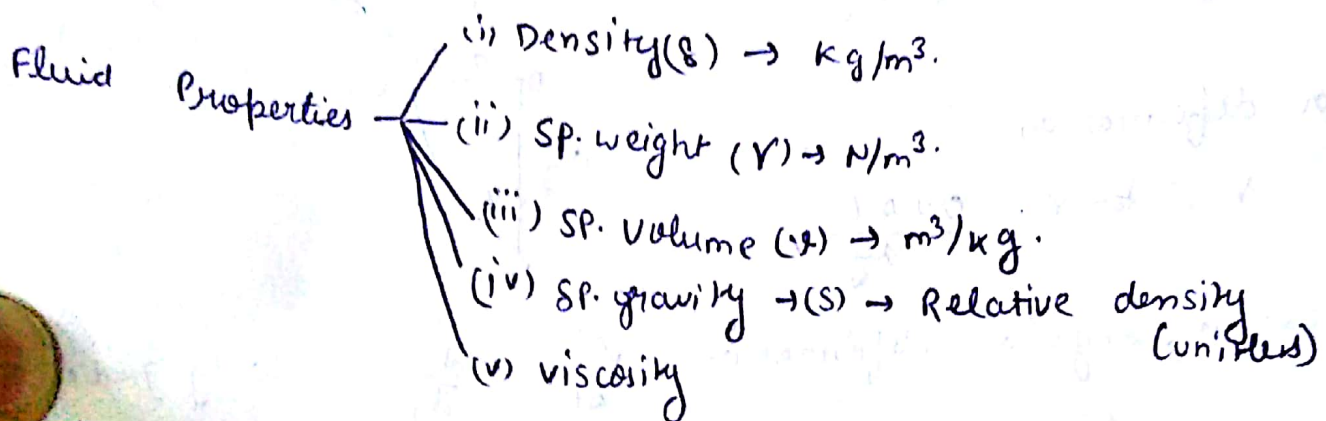 Fluid Properties
(i) Density(ρ) → Kg/m³.
(ii) SP. weight (γ) → N/m³.
(iii) SP. Volume (v) → m³/kg.
(iv) SP. gravity → (S) → Relative density
(unitless)
(v) viscosity